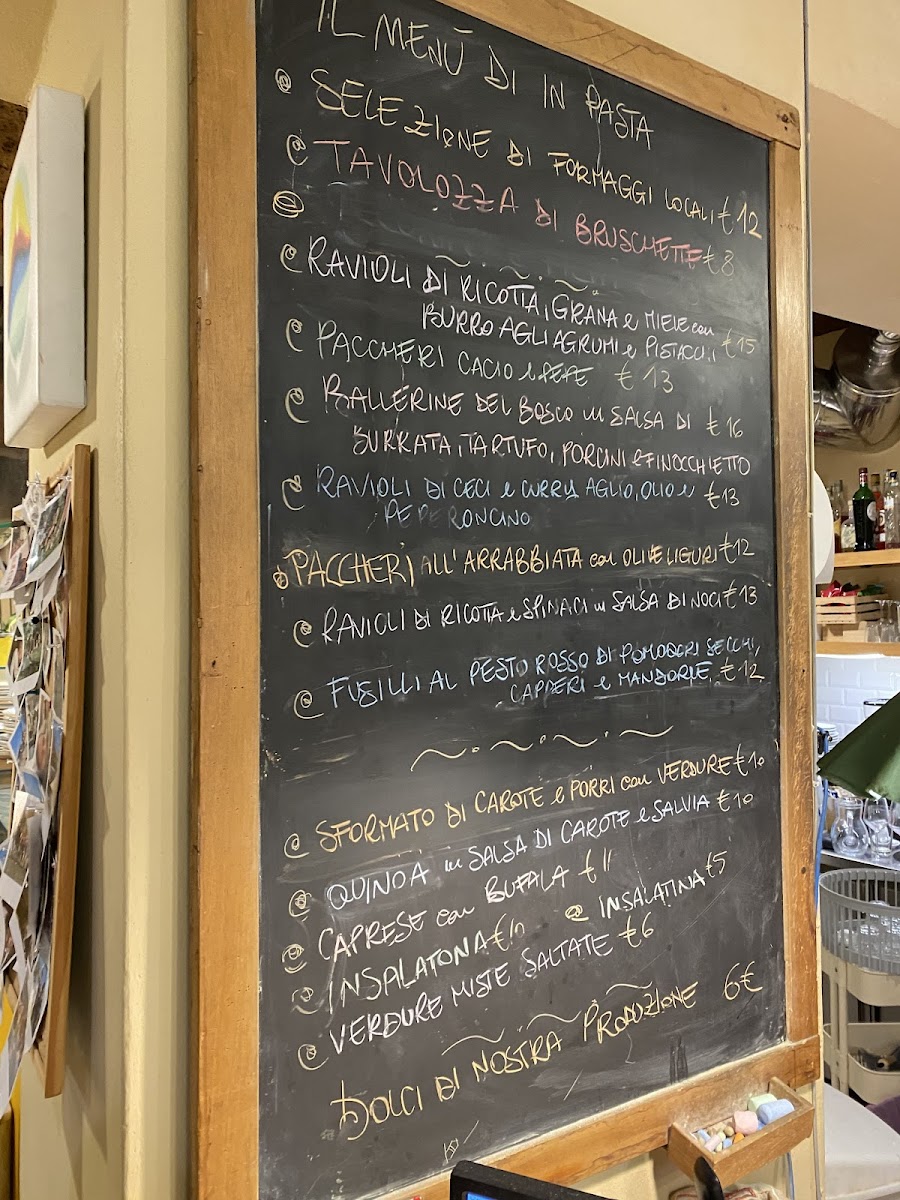 IL MENÙ DI IN PASTA
SELEZIONE DI FORMAGGI LOCALI €12
TAVOLOZZA DI BRUSCHETTE €8
RAVIOLI DI RICOTTA, GRANA e MIELE con
BURRO AGLI AGRUMI e PISTACCHI €15
PACCHERI CACIO e PEPE €13
BALLERINE DEL BOSCO in SALSA DI €16
BURRATA, TARTUFO, PORCINI e FINOCCHIETTO
RAVIOLI DI CECI e CURRY AGLIO, OLIO e €13
PEPERONCINO
PACCHERI ALL'ARRABBIATA con OLIVE LIGURI €12
RAVIOLI DI RICOTTA e SPINACI in SALSA DI NOCI €13
FUSILLI AL PESTO ROSSO DI POMODORI SECCHI,
CAPPERI e MANDORLE €12
SFORMATO DI CAROTE e PORRI con VERDURE €10
QUINOA in SALSA DI CAROTE e SALVIA €10
CAPRESE con BUFALA €11
INSALATONA €10 @ INSALATINA €5
VERDURE MISTE SALTATE €6
DOLCI DI NOSTRA PRODUZIONE 6€